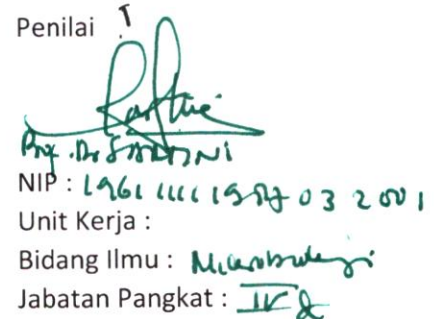 Penilai I
Prof. Dr SARDINI
NIP : 19611111 1987 03 2 001
Unit Kerja :
Bidang Ilmu : Mikrobiologi
Jabatan Pangkat : IV d